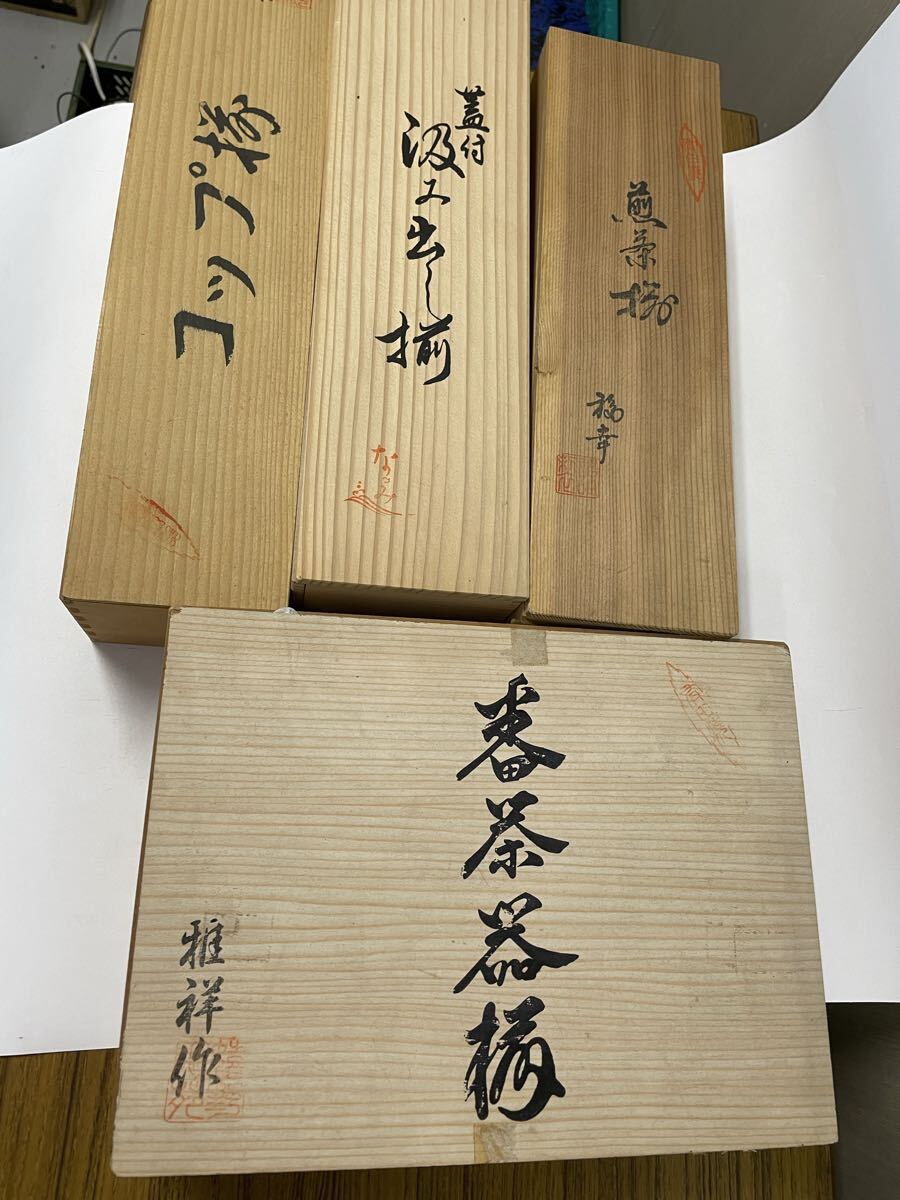 コップ揃
蓋付
汲み出し揃
なるみ
煎茶揃
福幸
番茶器揃
雅祥作